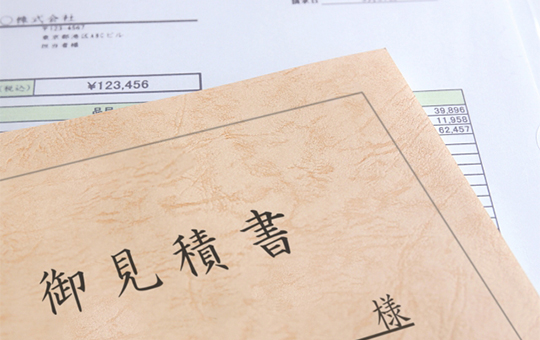 〇株式会社
〒123-4567
東京都港区ABCビル
担当者様
税込)
¥123,456
39,896
11,958
62,457
御見積書
様